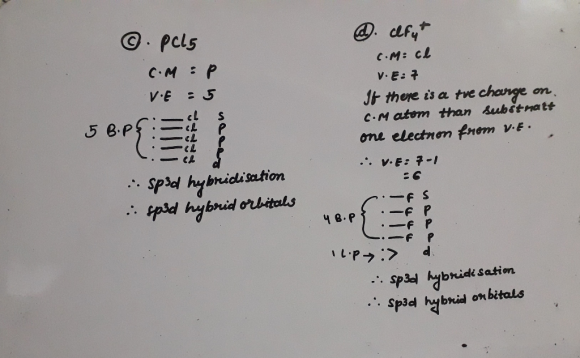 ⓒ. PCl5
C.M = P
V.E = 5
5 B.P { : — cl s
: — cl p
: — cl p
: — cl p
: — cl d
∴ sp3d hybridisation
∴ sp3d hybrid orbitals
ⓓ. clF4+
C.M = Cl
V.E = 7
If there is a +ve change on
C.M atom than substratt
one electron from V.E.
∴ V.E = 7-1
= 6
4 B.P { : — F s
: — F p
: — F p
: — F p
1 L.P → :> d
∴ sp3d hybridisation
∴ sp3d hybrid orbitals